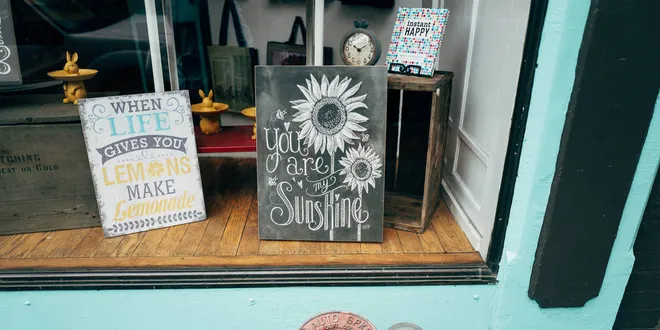 WHEN
LIFE
GIVES YOU
LEMONS
MAKE
Lemonade
You
are
my
Sunshine
instant
HAPPY
AUTO SPK